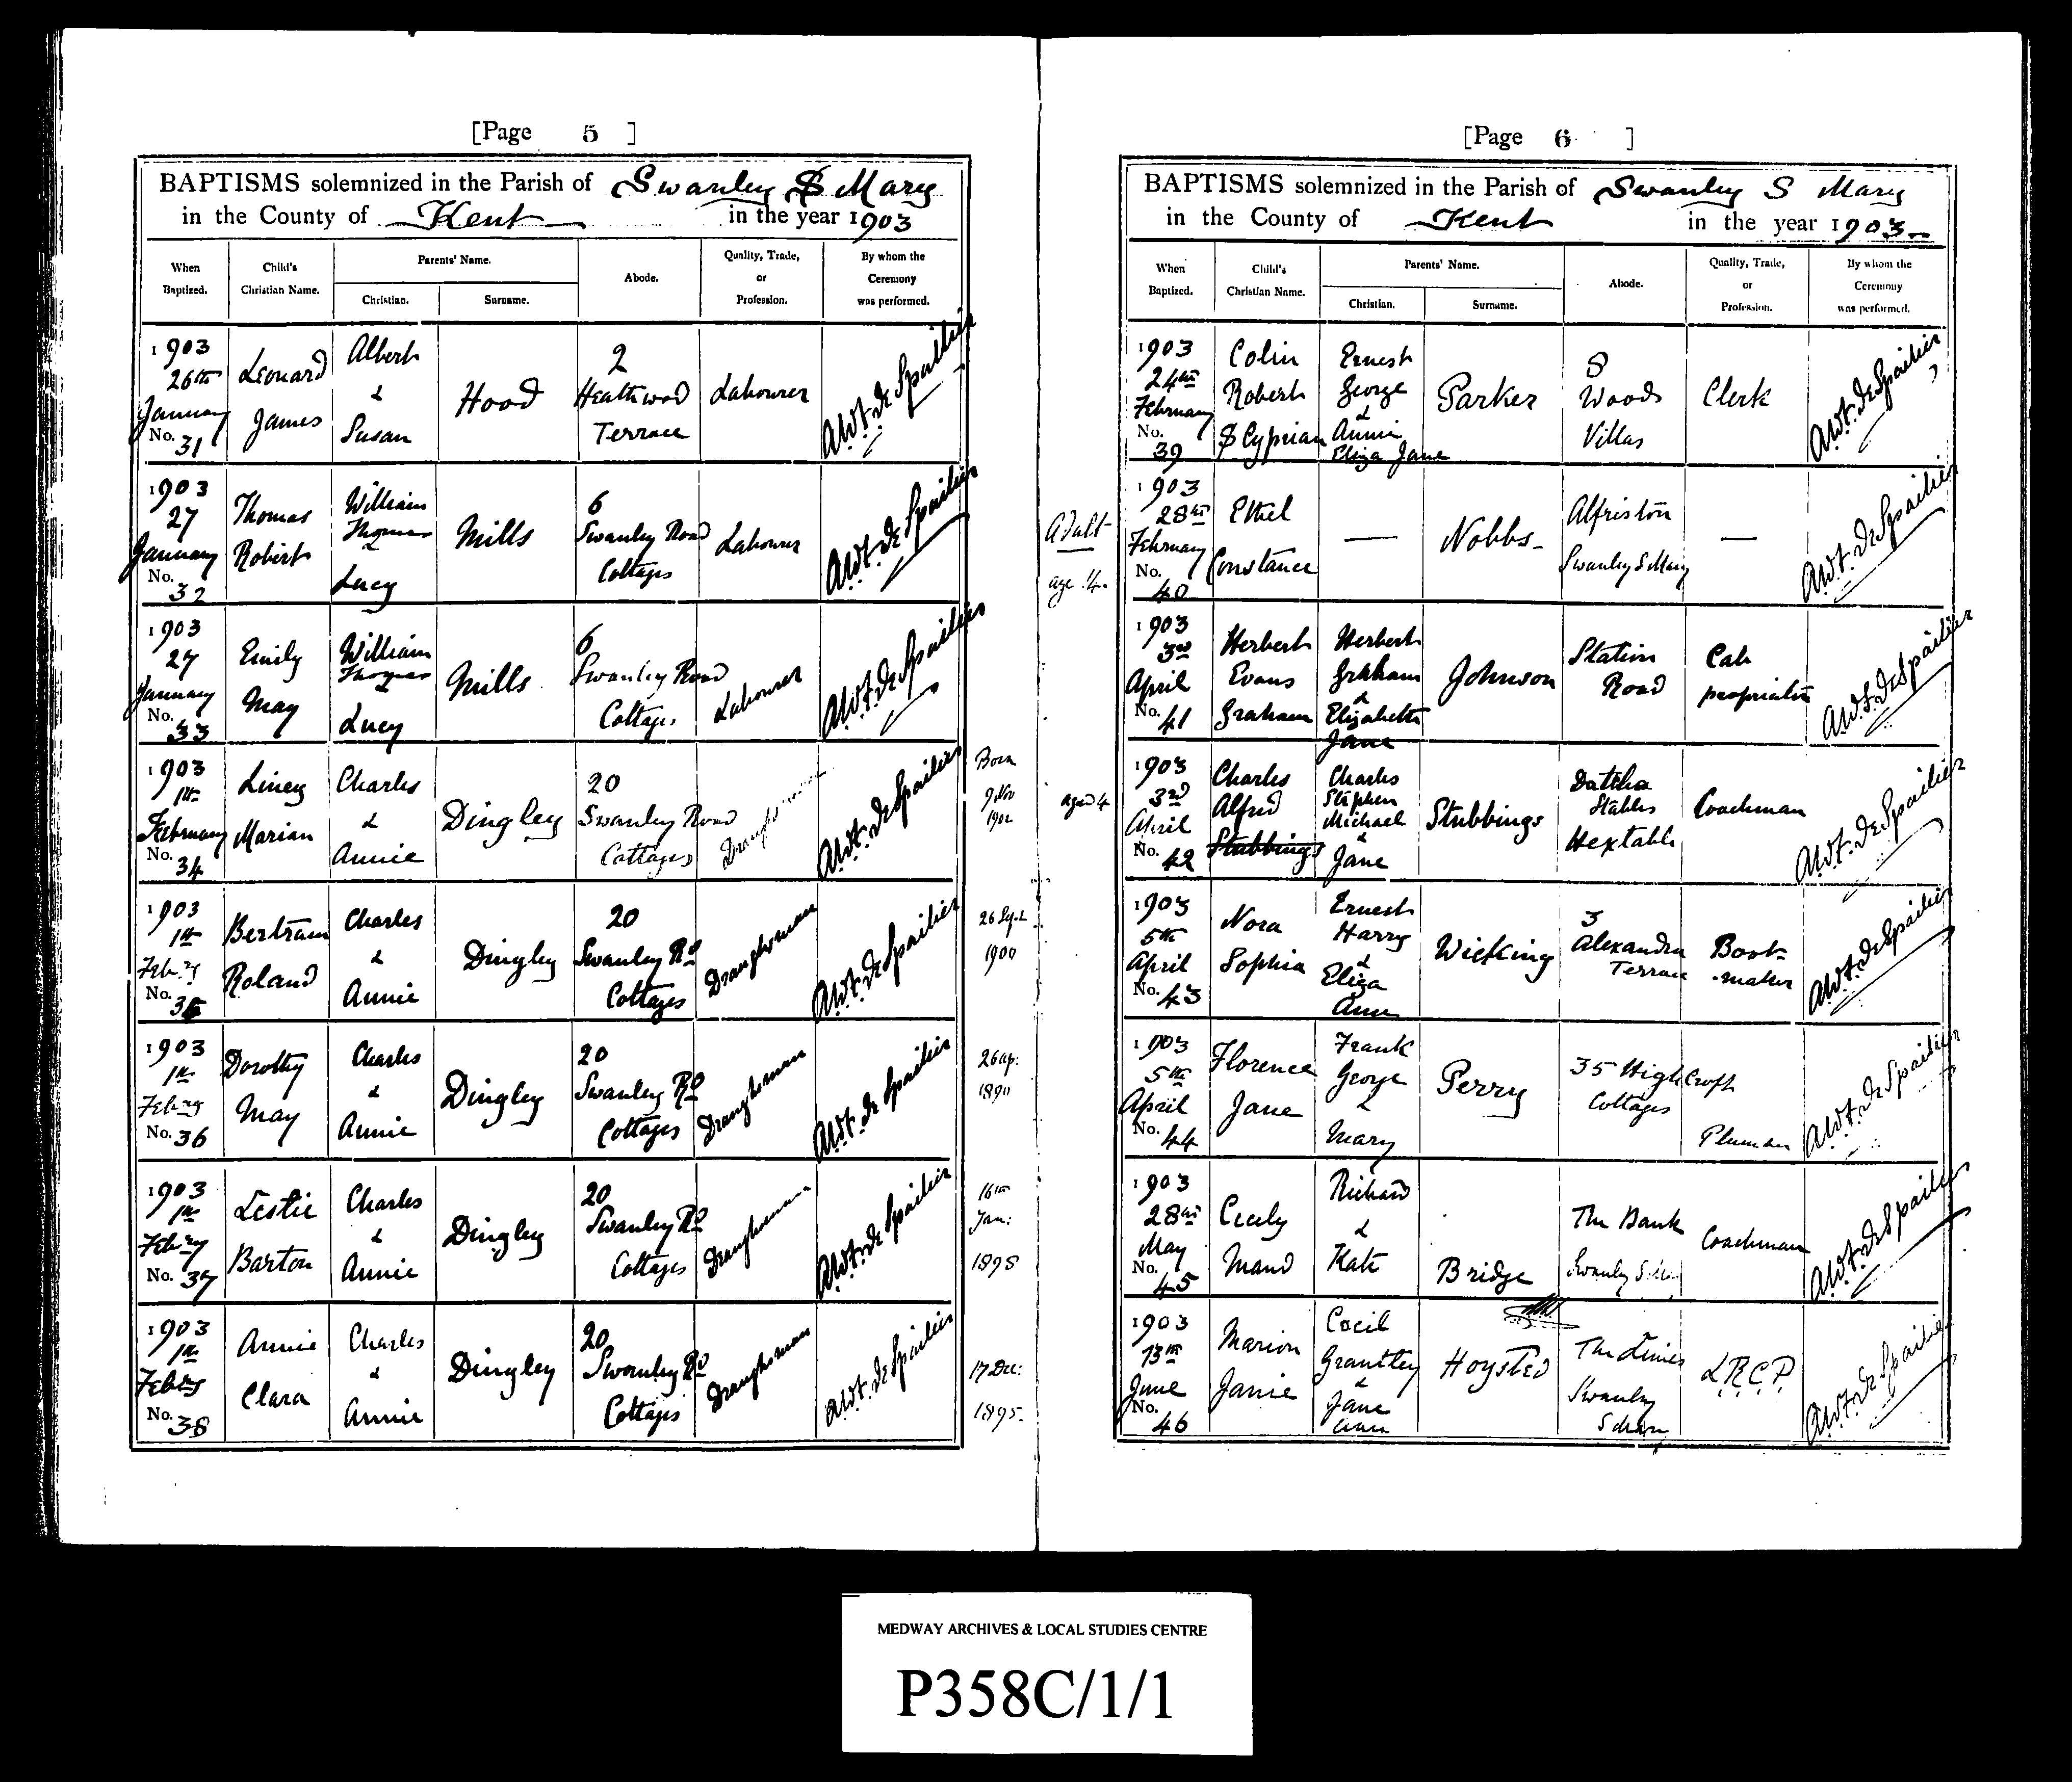 [Page 5 ]
BAPTISMS solemnized in the Parish of Swanley S Mary
in the County of Kent in the year 1903
When Baptized.
Child's Christian Name.
Parents' Name.
Christian.
Surname.
Abode.
Quality, Trade, or Profession.
By whom the Ceremony was performed.
1903 26th January No. 31
Leonard James
Albert & Susan
Hood
2 Heathwood Terrace
Labourer
1903 27 January No. 32
Thomas Robert
William Thomas & Lucy
Mills
6 Swanley Road Cottages
Labourer
1903 27 January No. 33
Emily May
William Thomas & Lucy
Mills
6 Swanley Road Cottages
Labourer
1903 1st February No. 34
Marian
Charles & Annie
Dingley
20 Swanley Road Cottages
Draughtsman
Born 9 Nov 1902
1903 1st No. 35
Bertram Roland
Charles & Annie
Dingley
20 Swanley Rd Cottages
Draughtsman
26 Sept 1900
1903 1st No. 36
Dorothy May
Charles & Annie
Dingley
20 Swanley Rd Cottages
Draughtsman
26 ap:
1903 1st No. 37
Leslie Barton
Charles & Annie
Dingley
20 Swanley Rd Cottages
Draughtsman
16th Jan: 1898
1903 1st No. 38
Annie Clara
Charles & Annie
Dingley
20 Swanley Rd Cottages
Draughtsman
17 Dec: 1895
[Page 6 ]
BAPTISMS solemnized in the Parish of Swanley S Mary
in the County of Kent in the year 1903
When Baptized.
Child's Christian Name.
Parents' Name.
Christian.
Surname.
Abode.
Quality, Trade, or Profession.
By whom the Ceremony was performed.
1903 24th February No. 39
Colin Robert S Cyprian
Ernest George & Annie Eliza Jane
Parker
8 Woods Villas
Clerk
Adult age 14.
1903 28th February No. 40
Ethel Constance
Nobbs
Alfriston Swanley S Mary
1903 3rd April No. 41
Herbert Evans Graham
Herbert Graham & Elizabeth Jane
Johnson
Station Road
Cab proprietor
aged 4
1903 3rd April No. 42
Charles Alfred Stubbings
Charles Stephen Michael & Jane
Stubbings
Stables Hextable
Coachman
1903 5th April No. 43
Nora Sophia
Ernest Harry & Eliza Ann
Wicking
3 Alexandra Terrace
Boot-maker
1903 5th April No. 44
Florence Jane
Frank George & Mary
Perry
35 High Croft Cottages
1903 28th May No. 45
Cicely Maud
Richard & Kate
Bridge
The Bank
Coachman
1903 13th June No. 46
Marion Janie
Cecil Grantley & Jane Ann
Hoysted
The Limes Swanley
L.R.C.P.
MEDWAY ARCHIVES & LOCAL STUDIES CENTRE
P358C/1/1